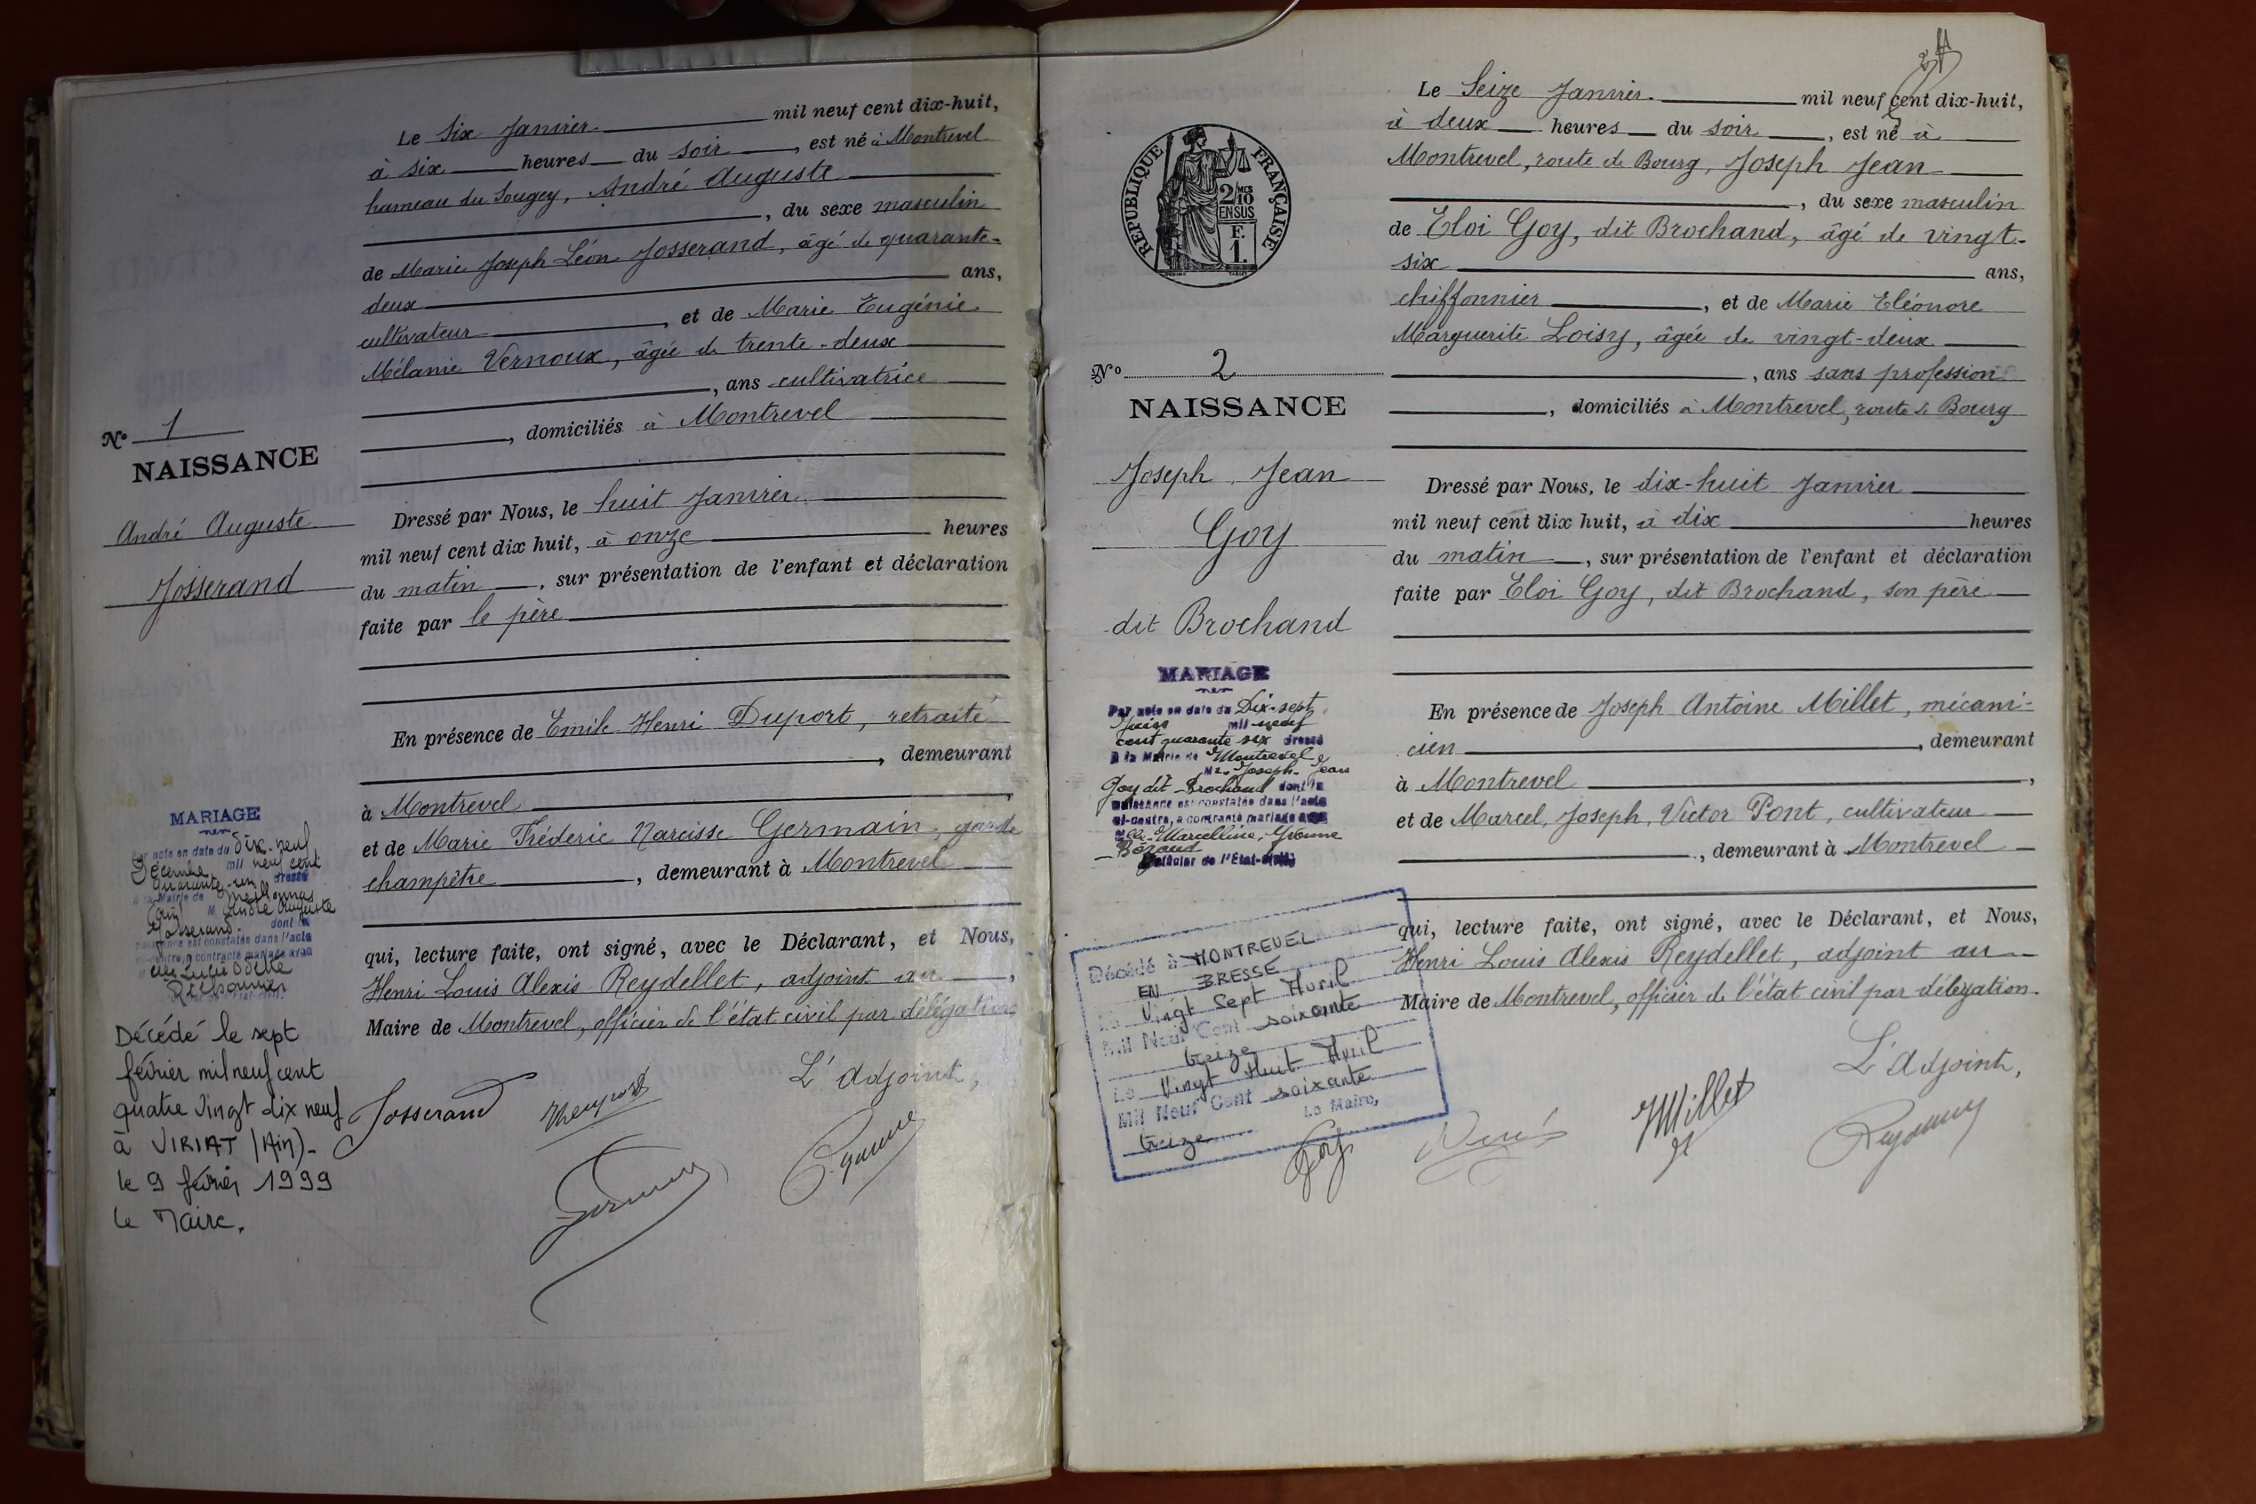 N° 1
NAISSANCE
André Auguste
Josserand
MARIAGE
Par acte en date du Dix-neuf
Décembre mil neuf cent
quarante-un dressé
à la Mairie de Meillonnas
(Ain) M. André Auguste
Josserand dont la
naissance est constatée dans l'acte
ci-contre, a contracté mariage avec
Lucie Odette
Décédé le sept
février mil neuf cent
quatre vingt dix neuf
à VIRIAT (Ain)-
le 9 février 1999
le Maire.
Le Six Janvier mil neuf cent dix-huit,
à six heures du soir, est né à Montrevel
hameau du Sougey, André Auguste
, du sexe masculin
de Marie Joseph Léon Josserand, âgé de quarante-
deux ans,
cultivateur, et de Marie Eugénie
Mélanie Vernoux, âgée de trente-deux
, ans cultivatrice
, domiciliés à Montrevel
Dressé par Nous, le huit Janvier
mil neuf cent dix huit, à onze heures
du matin, sur présentation de l'enfant et déclaration
faite par le père
En présence de Emile Henri Duport, retraité
, demeurant
à Montrevel,
et de Marie Fréderic Narcisse Germain, garde
champêtre, demeurant à Montrevel
qui, lecture faite, ont signé, avec le Déclarant, et Nous,
Henri Louis Alexis Reydellet, adjoint au,
Maire de Montrevel, officier de l'état civil par délégation
L'adjoint,
Josserand
24
RÉPUBLIQUE FRANÇAISE
2/10 MES
EN SUS
F.
1.
N° 2
NAISSANCE
Joseph Jean
Goy
dit Brochand
MARIAGE
Par acte en date du Dix-sept
mil neuf
cent quarante six dressé
à la Mairie de Montrevel
Mr Joseph-Jean
Goy dit Brochand dont la
naissance est constatée dans l'acte
ci-contre, a contracté mariage avec
Elle Marcelline, Yvonne
l'Officier de l'État-civil
Décédé à MONTREVEL
EN BRESSE
Le Vingt Sept Avril
Mil Neuf Cent soixante
treize
Le Vingt Huit Avril
Mil Neuf Cent soixante
treize Le Maire,
Le Seize Janvier mil neuf cent dix-huit,
à deux heures du soir, est né à
Montrevel, route de Bourg, Joseph Jean
, du sexe masculin
de Eloi Goy, dit Brochand, âgé de vingt-
six ans,
chiffonnier, et de Marie Eléonore
Marguerite Loisy, âgée de vingt-deux
, ans sans profession
, domiciliés à Montrevel, route de Bourg
Dressé par Nous, le dix-huit Janvier
mil neuf cent dix huit, à dix heures
du matin, sur présentation de l'enfant et déclaration
faite par Eloi Goy, dit Brochand, son père
En présence de Joseph Antoine Millet, mécani-
cien, demeurant
à Montrevel,
et de Marcel, Joseph, Victor Pont, cultivateur
, demeurant à Montrevel
qui, lecture faite, ont signé, avec le Déclarant, et Nous,
Henri Louis Alexis Reydellet, adjoint au
Maire de Montrevel, officier de l'état civil par délégation.
L'adjoint,
Goy
JMillet